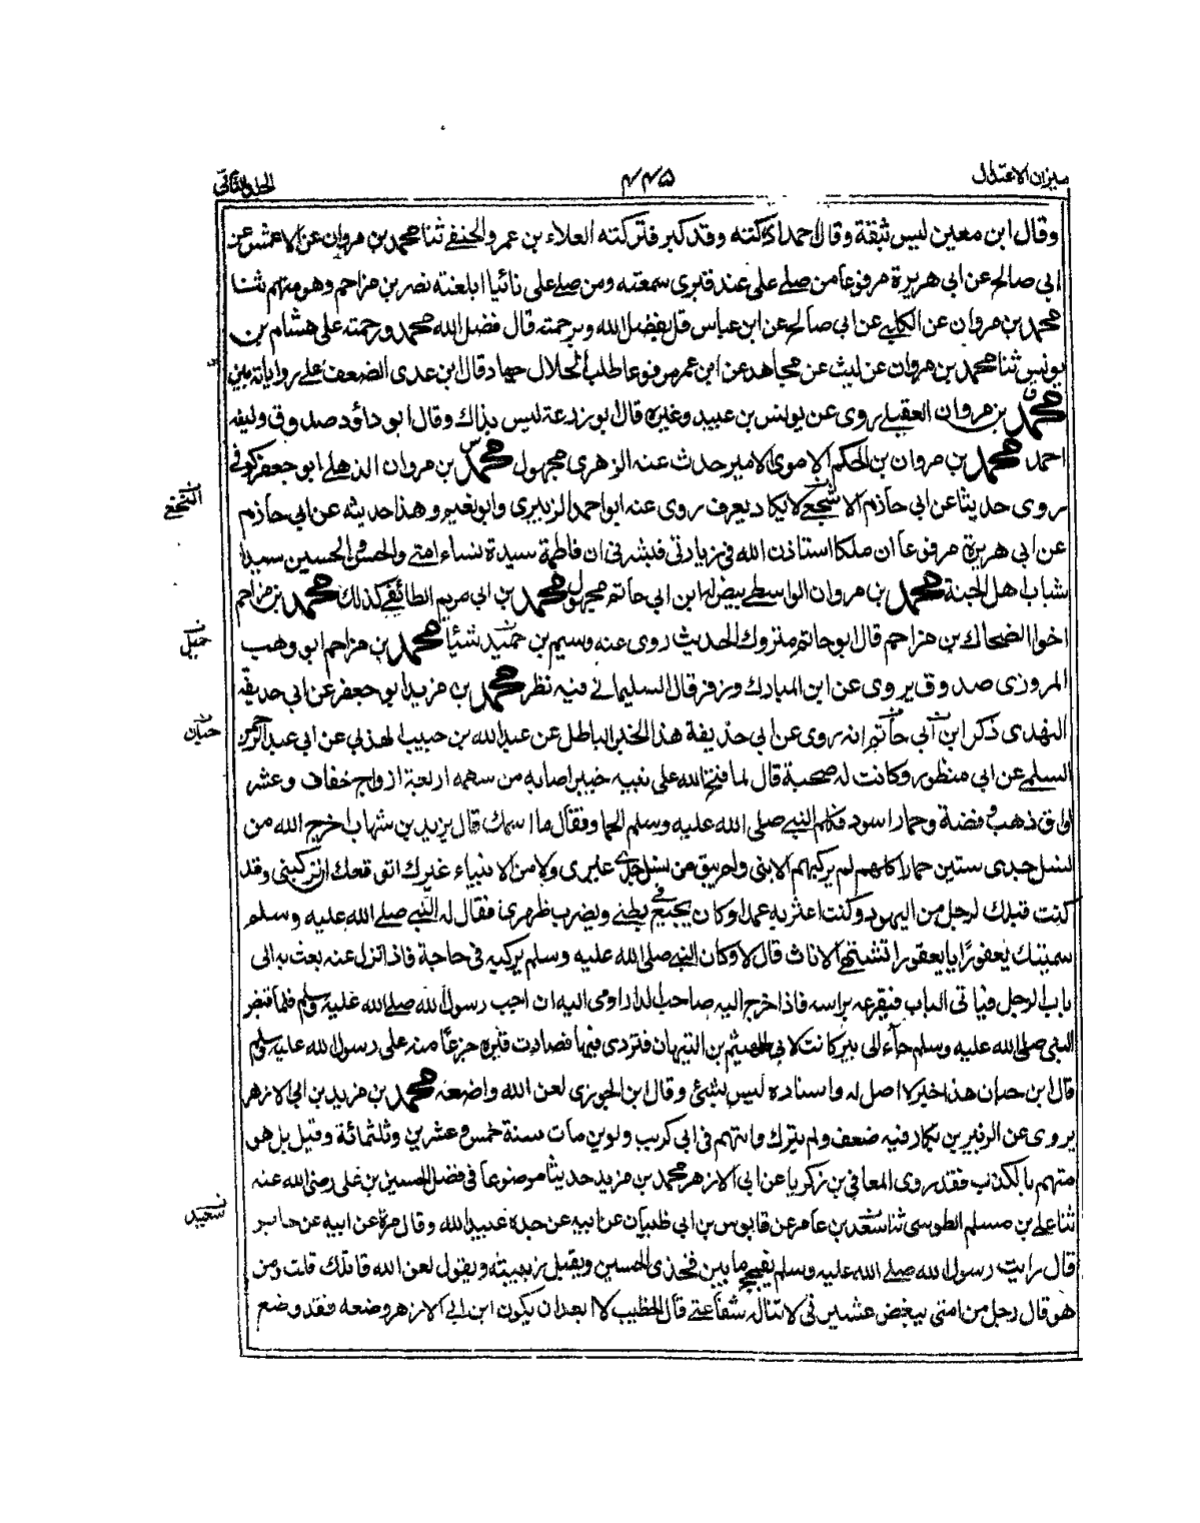 ميزان الاعتدال ۴۴۵ الجلد الثاني
وقال ابن معين ليس بثقة وقال احمد ادركته وقد كبر فتركته العلاء بن عمرو الحنفي ثنا محمد بن مروان عن الاعمش عن
ابي صالح عن ابي هريرة مرفوعا من صلى علي عند قبري سمعته ومن صلى علي نائيا ابلغته نصر بن مزاحم وهو متهم ثنا
محمد بن مروان عن الكلبي عن ابي صالح عن ابن عباس قل بفضل الله وبرحمته قال فضل الله محمد ورحمته علي هشام بن
يونس ثنا محمد بن مروان عن ليث عن مجاهد عن ابن عمر مرفوعا طلب الحلال جهاد قال ابن عدي الضعف على رواياته بين
محمد بن مروان العقيلي روى عن يونس بن عبيد وغيره قال ابو زرعة ليس بذاك وقال ابو داؤد صدوق وليفه
احمد محمد بن مروان بن الحكم الاموي الامير حدث عنه الزهري مجهول محمد بن مروان الذهلي ابو جعفر كوفي
روى حديثا عن ابي حازم الاشجعي لا يكاد يعرف روى عنه ابو احمد الزبيري وابو نعيم وهذا حديثه عن ابي حازم
النخعي
عن ابي هريرة مرفوعا ان ملكا استاذن الله في زيارتي فبشرني ان فاطمة سيدة نساء امتي والحسن والحسين سيدا
شباب اهل الجنة محمد بن مروان الواسطي بيض له ابن ابي حاتم مجهول محمد بن ابي مريم الطائفي كذلك محمد بن مزاحم
اخو الضحاك بن مزاحم قال ابو حاتم متروك الحديث روى عنه وسيم بن جميل شيئا محمد بن مزاحم ابو وهب
جميل
المروزي صدوق يروي عن ابن المبارك وزفر قال السليماني فيه نظر محمد بن مزيد ابو جعفر عن ابي حذيفة
النهدي ذكر ابن ابي حاتم انه روى عن ابي حذيفة هذا الخبر الباطل عن عبد الله بن حبيب الهذلي عن ابي عبد الرحمن
حبان
السلمي عن ابي منظور وكانت له صحبة قال لما فتح الله على نبيه خيبر اصابه من سهمه اربعة ازواج خفاف وعشر
اواق ذهب وفضة وحمار اسود فكلم النبي صلى الله عليه وسلم الحمار فقال ما اسمك قال يزيد بن شهاب اخرج الله من
نسل جدي ستين حمارا كلهم لم يركبهم الا نبي ولم يبق من نسل جدي غيري ولا من الانبياء غيرك اتوقعك ان تركبني وقد
كنت قبلك لرجل من اليهود وكنت اعثر به عمدا وكان يجيع بطني ويضرب ظهري فقال له النبي صلى الله عليه وسلم
سميتك يعفورا يا يعفور اتشتهي الاناث قال لا وكان النبي صلى الله عليه وسلم يركبه في حاجة فاذا نزل عنه بعث به الى
باب الرجل فياتي الباب فيقرعه براسه فاذا خرج اليه صاحب الدار اومى اليه ان اجب رسول الله صلى الله عليه وسلم فلما قبض
النبي صلى الله عليه وسلم جاء الى بير كانت لابي الهيثم بن التيهان فتردى فيها فصارت قبره جزعا منه على رسول الله عليه وسلم
قال ابن حبان هذا خبر لا اصل له واسناده ليس بشئ وقال ابن الجوزي لعن الله واضعه محمد بن مزيد بن ابي الازهر
يروي عن الزبير بن بكار فيه ضعف ولم يترك واتهم في ابي كريب ولوين مات سنة خمس وعشرين وثلثمائة وقيل بل هو
متهم بالكذب فقد روى المعافى بن زكريا عن ابي الازهر محمد بن مزيد حديثا موضوعا في فضل الحسين بن علي رضي الله عنه
ثنا علي بن مسلم الطوسي ثنا سعد بن عامر عن قابوس بن ابي ظبيان عن ابيه عن جده عبيد الله وقال مرة عن ابيه عن جابر
سعيد
قال رايت رسول الله صلى الله عليه وسلم يفحج ما بين فخذي الحسين ويقبل زبيبته ويقول لعن الله قاتلك قلت ومن
هو قال رجل من امتي يبغض عشيرتي لا تناله شفاعتي قال الخطيب لا ابعد ان يكون ابن ابي الازهر وضعه فقد وضع